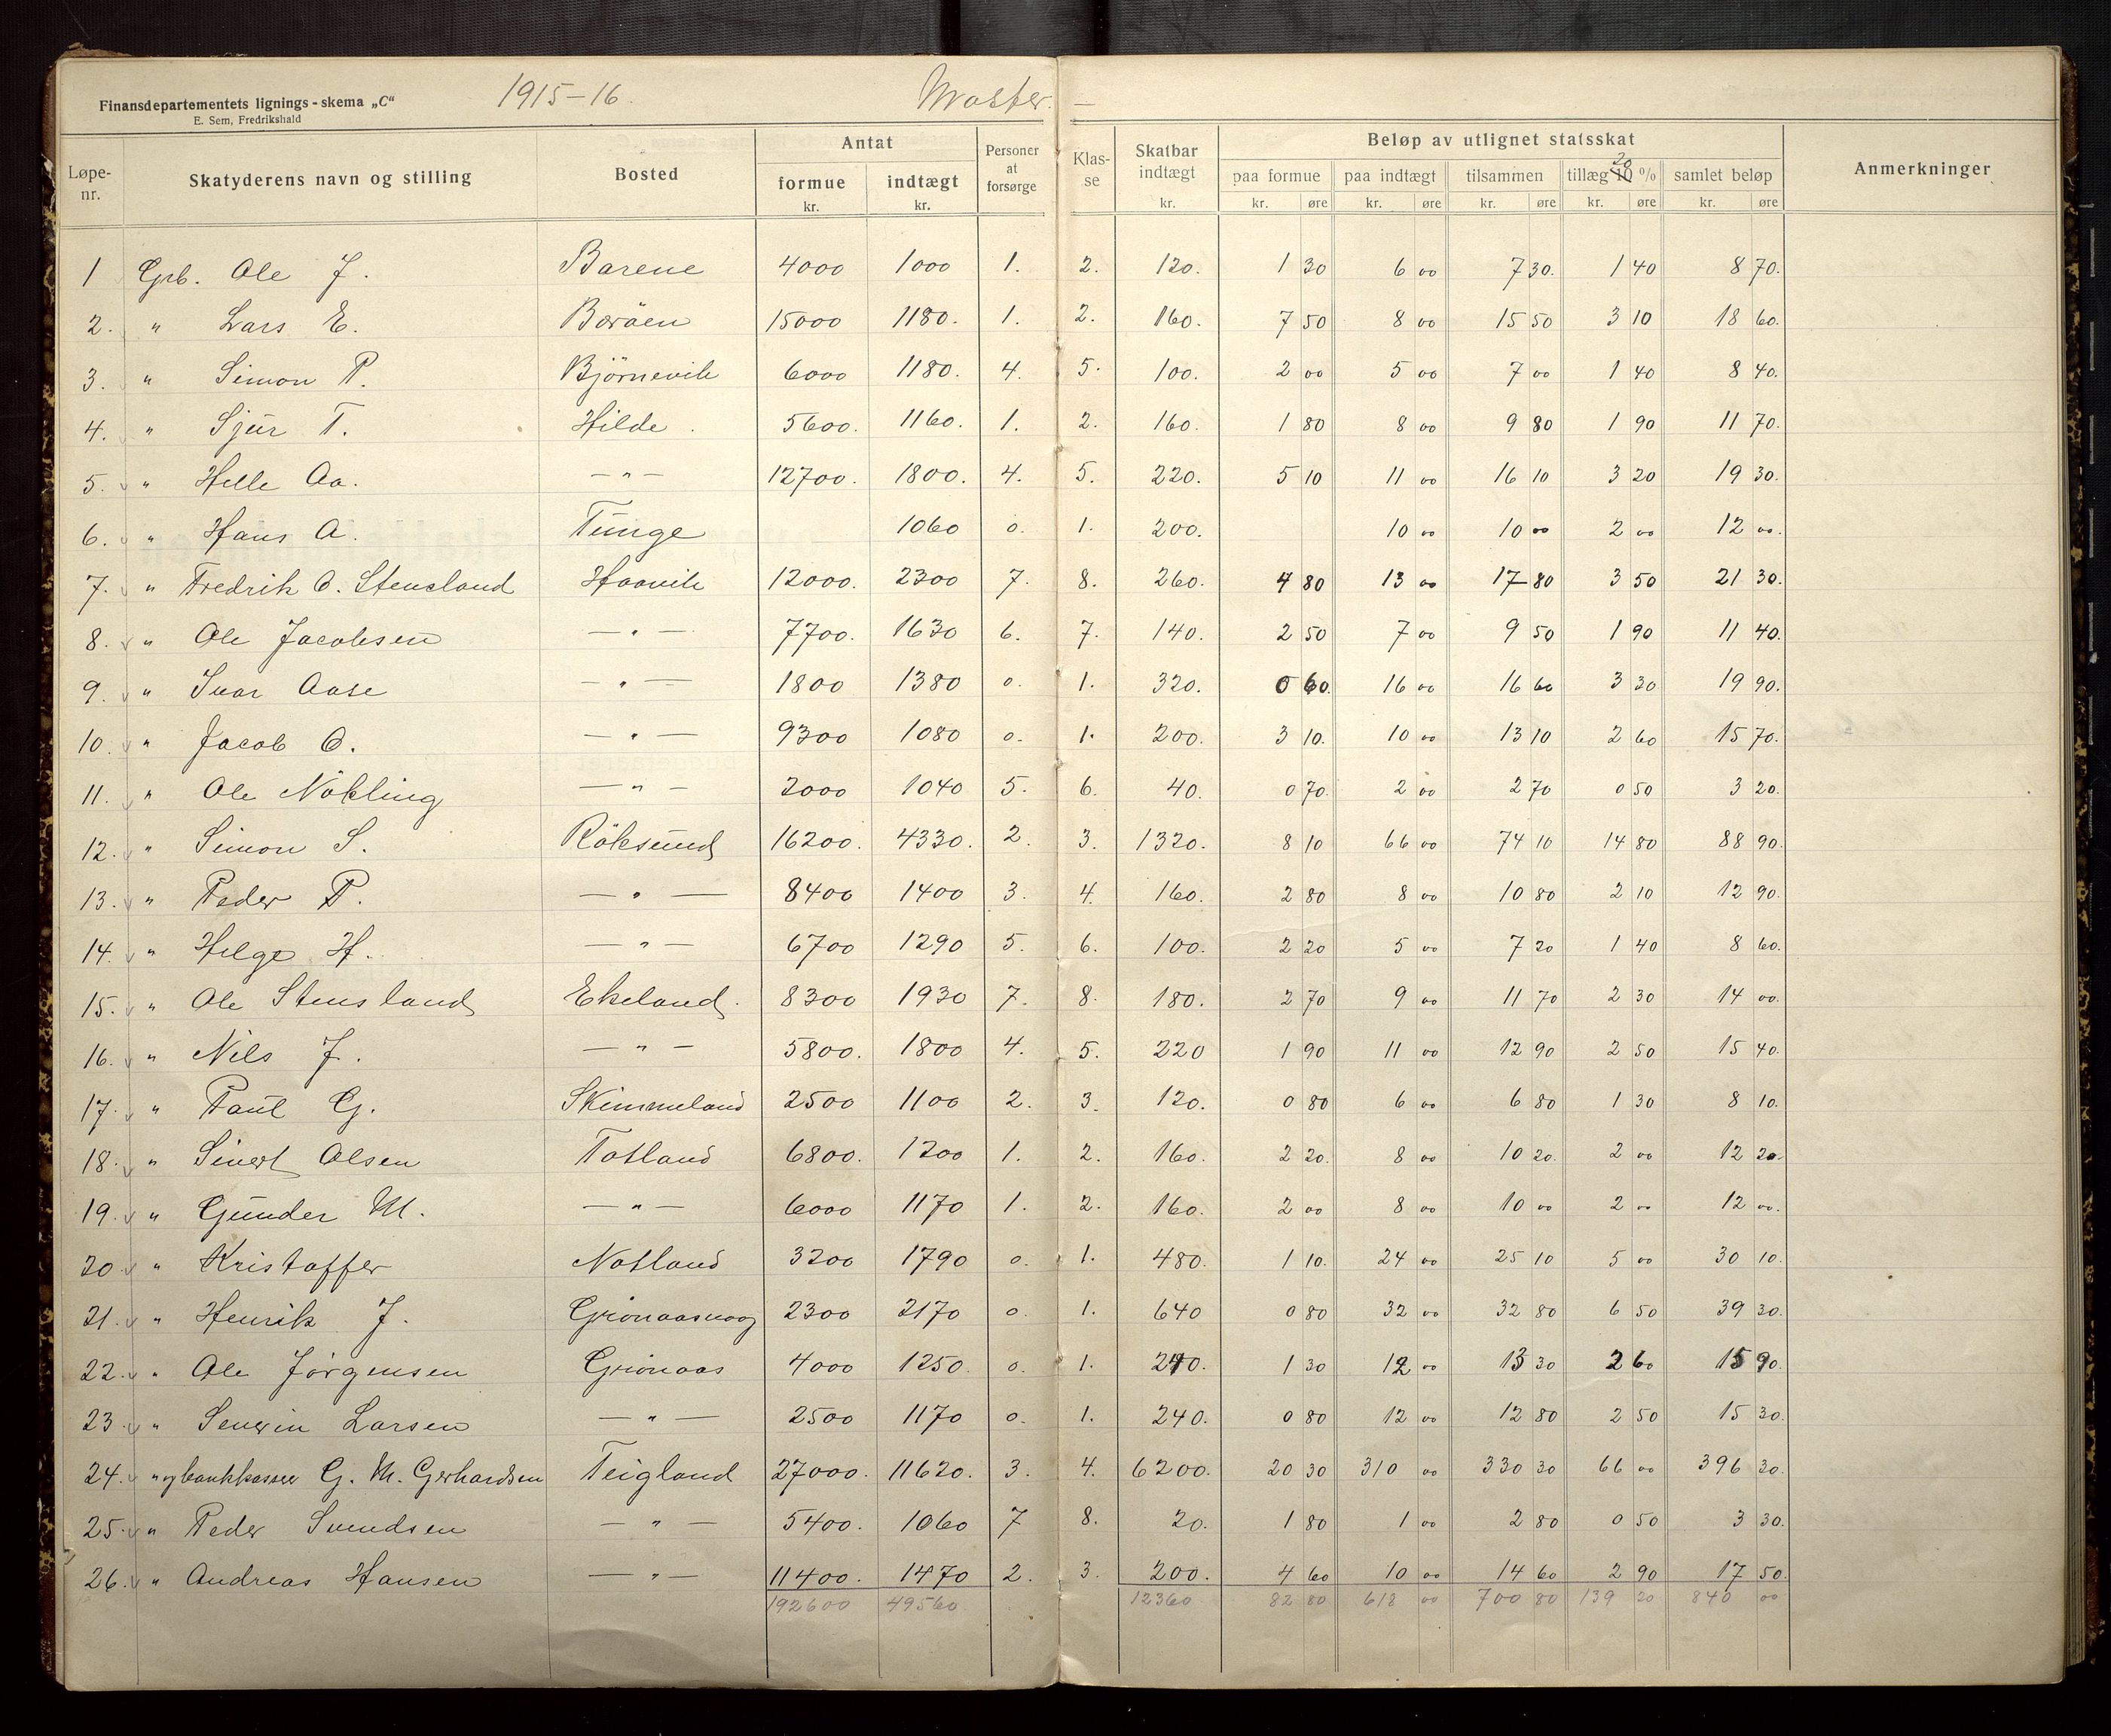 Finansdepartementets lignings-skema „C“ 1915-16. Moster. —
E. Sem, Fredrikshald
Løpe-nr. Skatyderens navn og stilling Bosted Antat formue kr. indtægt kr. Personer at forsørge Klasse Skatbar indtægt kr. Beløp av utlignet statsskat paa formue kr. øre paa indtægt kr. øre tilsammen kr. øre tillæg 10 20 % kr. øre samlet beløp kr. øre Anmerkninger
1 Grb. Ole J. Barene 4000 1000 1. 2. 120. 1 30 6 00 7 30. 1 40 8 70.
2. " Lars E. Böröen 15000 1180. 1. 2. 160. 7 50 8 00 15 50 3 10 18 60.
3. " Simon P. Björnevik 6000 1180. 4. 5. 100. 2 00 5 00 7 00 1 40 8 40.
4. " Sjur T. Hilde. 5600. 1160. 1. 2. 160. 1 80 8 00 9 80 1 90 11 70.
5. " Helle Aa. —"— 12700. 1800. 4. 5. 220. 5 10 11 00 16 10 3 20 19 30.
6. " Hans A. Tunge 1060 0. 1. 200. 10 00 10 00 2 00 12 00.
7. " Fredrik O. Stensland Haavik 12000. 2300 7. 8. 260. 4 80 13 00 17 80 3 50 21 30.
8. " Ole Jacobsen —"— 7700. 1630 6. 7. 140. 2 50 7 00 9 50 1 90 11 40.
9. " Ivar Aase —"— 1800 1380 0. 1. 320. 0 60. 16 00 16 60 3 30 19 90.
10. " Jacob O. —"— 9300 1080 0. 1. 200. 3 10. 10 00 13 10 2 60 15 70.
11. " Ole Nökling —"— 2000 1040 5. 6. 40. 0 70. 2 00 2 70 0 50 3 20.
12. " Simon S. Röksund 16200. 4330. 2. 3. 1320. 8 10 66 00 74 10 14 80 88 90.
13. " Peder P. —"— 8400 1400 3. 4. 160. 2 80 8 00 10 80 2 10 12 90.
14. " Helge H. —"— 6700 1290 5. 6. 100. 2 20 5 00 7 20 1 40 8 60.
15. " Ole Stensland Ekeland. 8300 1930 7. 8. 180. 2 70 9 00 11 70 2 30 14 00.
16. " Nils J. —"— 5800. 1800 4. 5. 220 1 90 11 00 12 90 2 50 15 40.
17. " Paul G. Skimmeland 2500 1100 2. 3. 120. 0 80 6 00 6 80 1 30 8 10.
18. " Sivert Olsen Totland 6800. 1200 1. 2. 160. 2 20. 8 00 10 20. 2 00 12 20.
19. " Gunder M. —"— 6000 1170 1. 2. 160. 2 00 8 00 10 00 2 00 12 00.
20. " Kristoffer Notland 3200 1790 0. 1. 480. 1 10. 24 00 25 10 5 00 30 10.
21. " Henrik J. Grönaasvaag 2300 2170 0. 1. 640 0 80 32 00 32 80 6 50 39 30.
22. " Ole Jörgensen Grönaas 4000 1250. 0. 1. 240. 1 30 12 00 13 30 2 60 15 90.
23. " Severin Larsen —"— 2500 1170 0. 1. 240. 0 80 12 00 12 80 2 50 15 30.
24. " og bankkasser G. M. Gerhardsen Teigland 27000. 11620. 3. 4. 6200. 20 30 310 00 330 30 66 00 396 30.
25. " Peder Svendsen —"— 5400. 1060 7 8. 20. 1 80 1 00 2 80 0 50 3 30.
26. " Andreas Hansen —"— 11400. 1470 2. 3. 200. 4 60 10 00 14 60 2 90 17 50.
192600 49560 12360 82 80 618 00 700 80 139 20 840 00